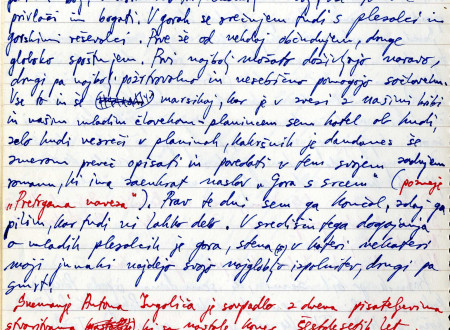 privlači in bogati. V gorah se srečujem tudi s plesalci in
gorskimi reševalci. Prve že od nekdaj občudujem, druge
globoko spoštujem. Prvi najbolj možato doživljajo naravo,
drugi pa najbolj požrtvovalno in nesebično pomagajo sočloveku.
Vse to in še marsikaj, kar je v zvezi z našimi hribi
in našim mladim človekom-planincem sem hotel ob hudi,
zelo hudi nesreči v planinah, kakršnih je dandanes še
zmerom preveč opisati in povedati v tem svojem zadnjem
romanu, ki ima zaenkrat naslov „Gora s srcem" (pozneje
„Pretrgana naveza"). Prav te dni sem ga končal, zdaj ga
pilim, kar tudi ni lahko delo. V središču tega dogajanja
o mladih plezalcih je gora, stena, v kateri nekateri
moji junaki najdejo svojo najgloblo izpolnitev, drugi pa
smrt.
Snemanje Antona Ingoliča je sovpadlo z dvema pisateljevima
ki sa nastala konec šestdesetih let